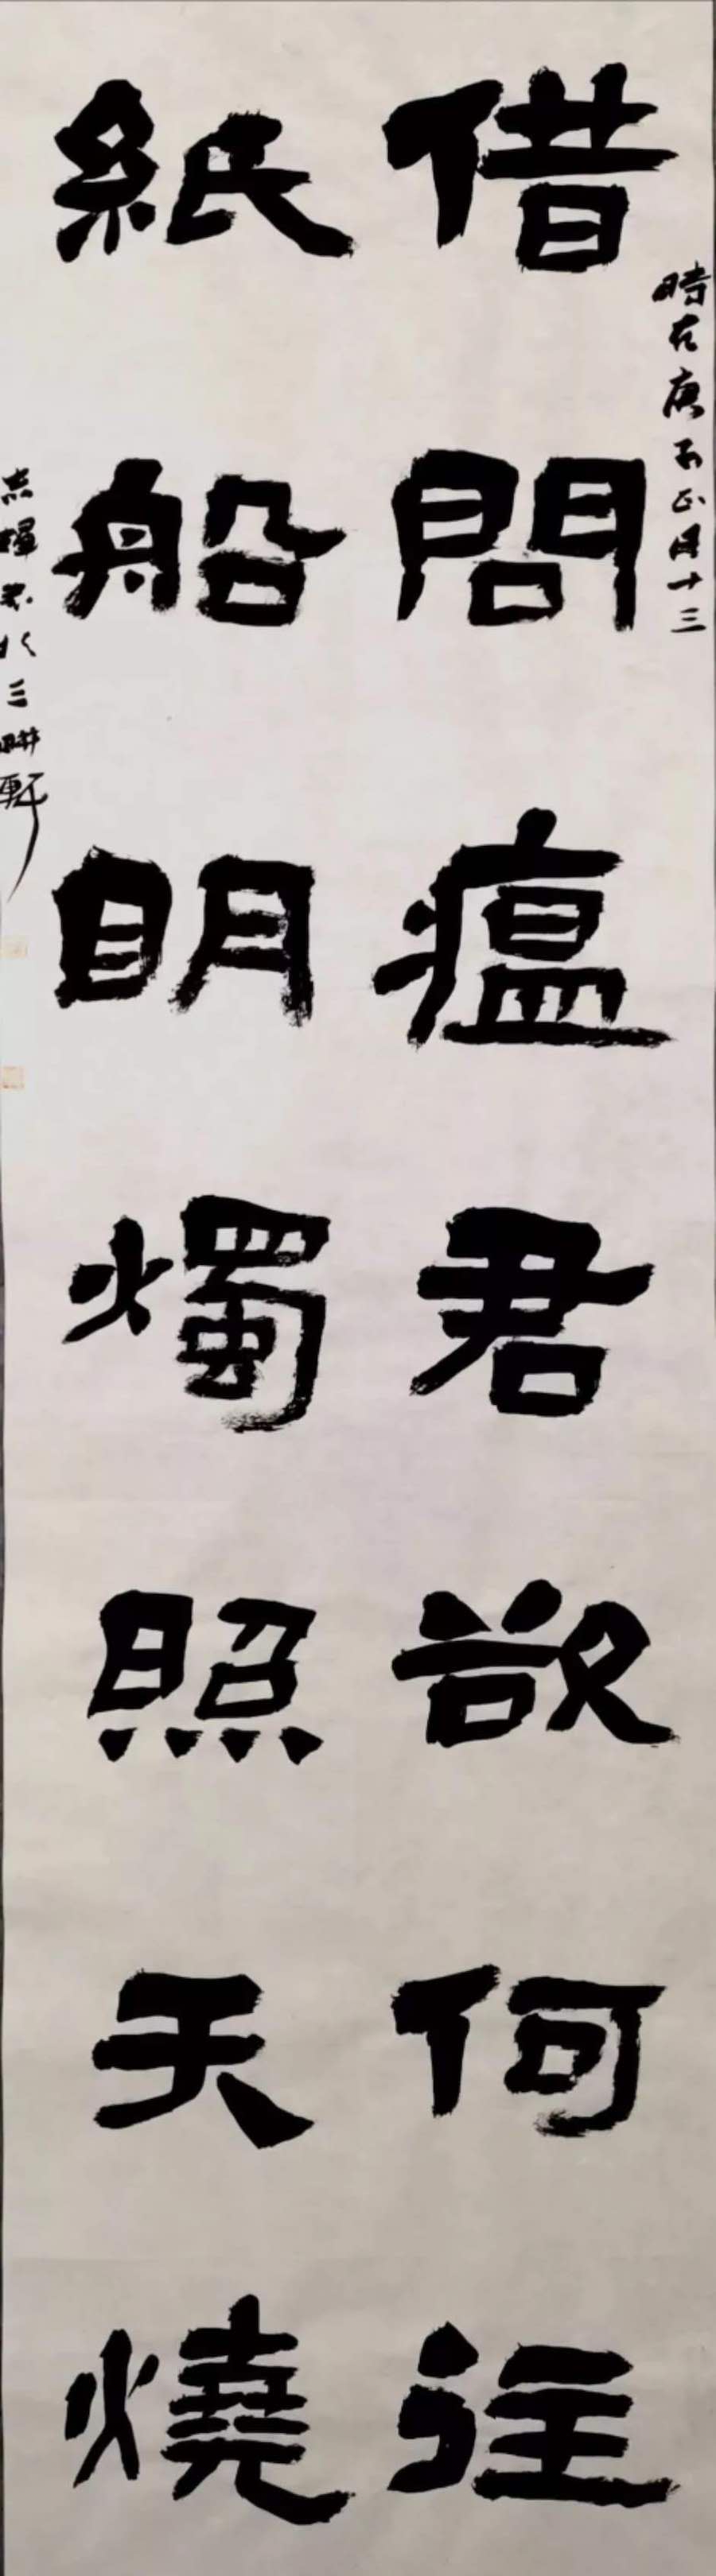 時在庚子正月十三
借問瘟君欲何往
紙船明燭照天燒
志輝書於三畊軒